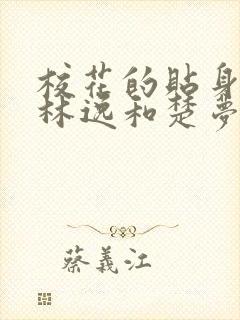 校花的贴身
林逸和楚夢
蔡義江